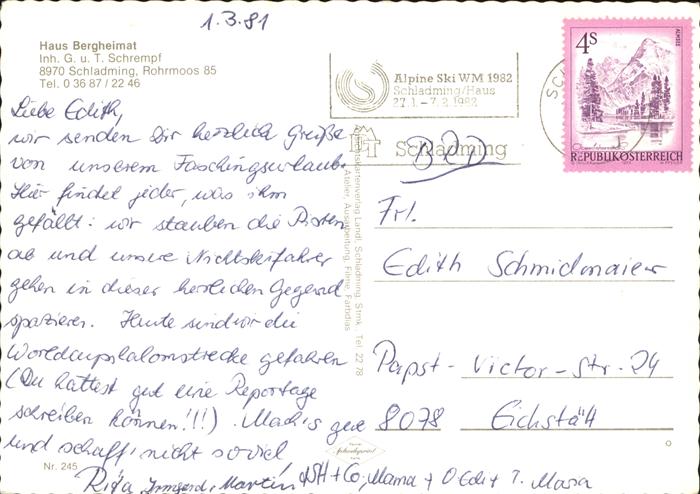 1.3.81
Haus Bergheimat
Inh. G. u. T. Schrempf
8970 Schladming, Rohrmoos 85
Tel. 0 36 87 / 22 46
Alpine Ski WM 1982
Schladming/Haus
27.1. – 7.2. 1982
4s
ALMSEE
REPUBLIK ÖSTERREICH
Schladming
BRD
Liebe Edith,
wir senden Dir herzlich Grüße
von unserem Faschingsurlaub.
Hier findet jeder, was ihm
gefällt: wir stauben die Pisten
ab und unsere Nichtskifahrer
gehen in dieser herrlichen Gegend
spazieren. Heute sind wir die
Worldcupslalomstrecke gefahren
(Du hättest gut eine Reportage
schreiben können!!!). Mach's gut
und schaff' nicht soviel
Rita, Irmgard, Martin, + Co, Mama +
Frl.
Edith Schmidmaier
Papst-Victor-Str. 24
8078 Eichstätt
Ansichtskartenverlag Landl, Schladming, Stmk., Tel. 22 78
Atelier, Ausarbeitung, Filme, Farbdias
Nr. 245